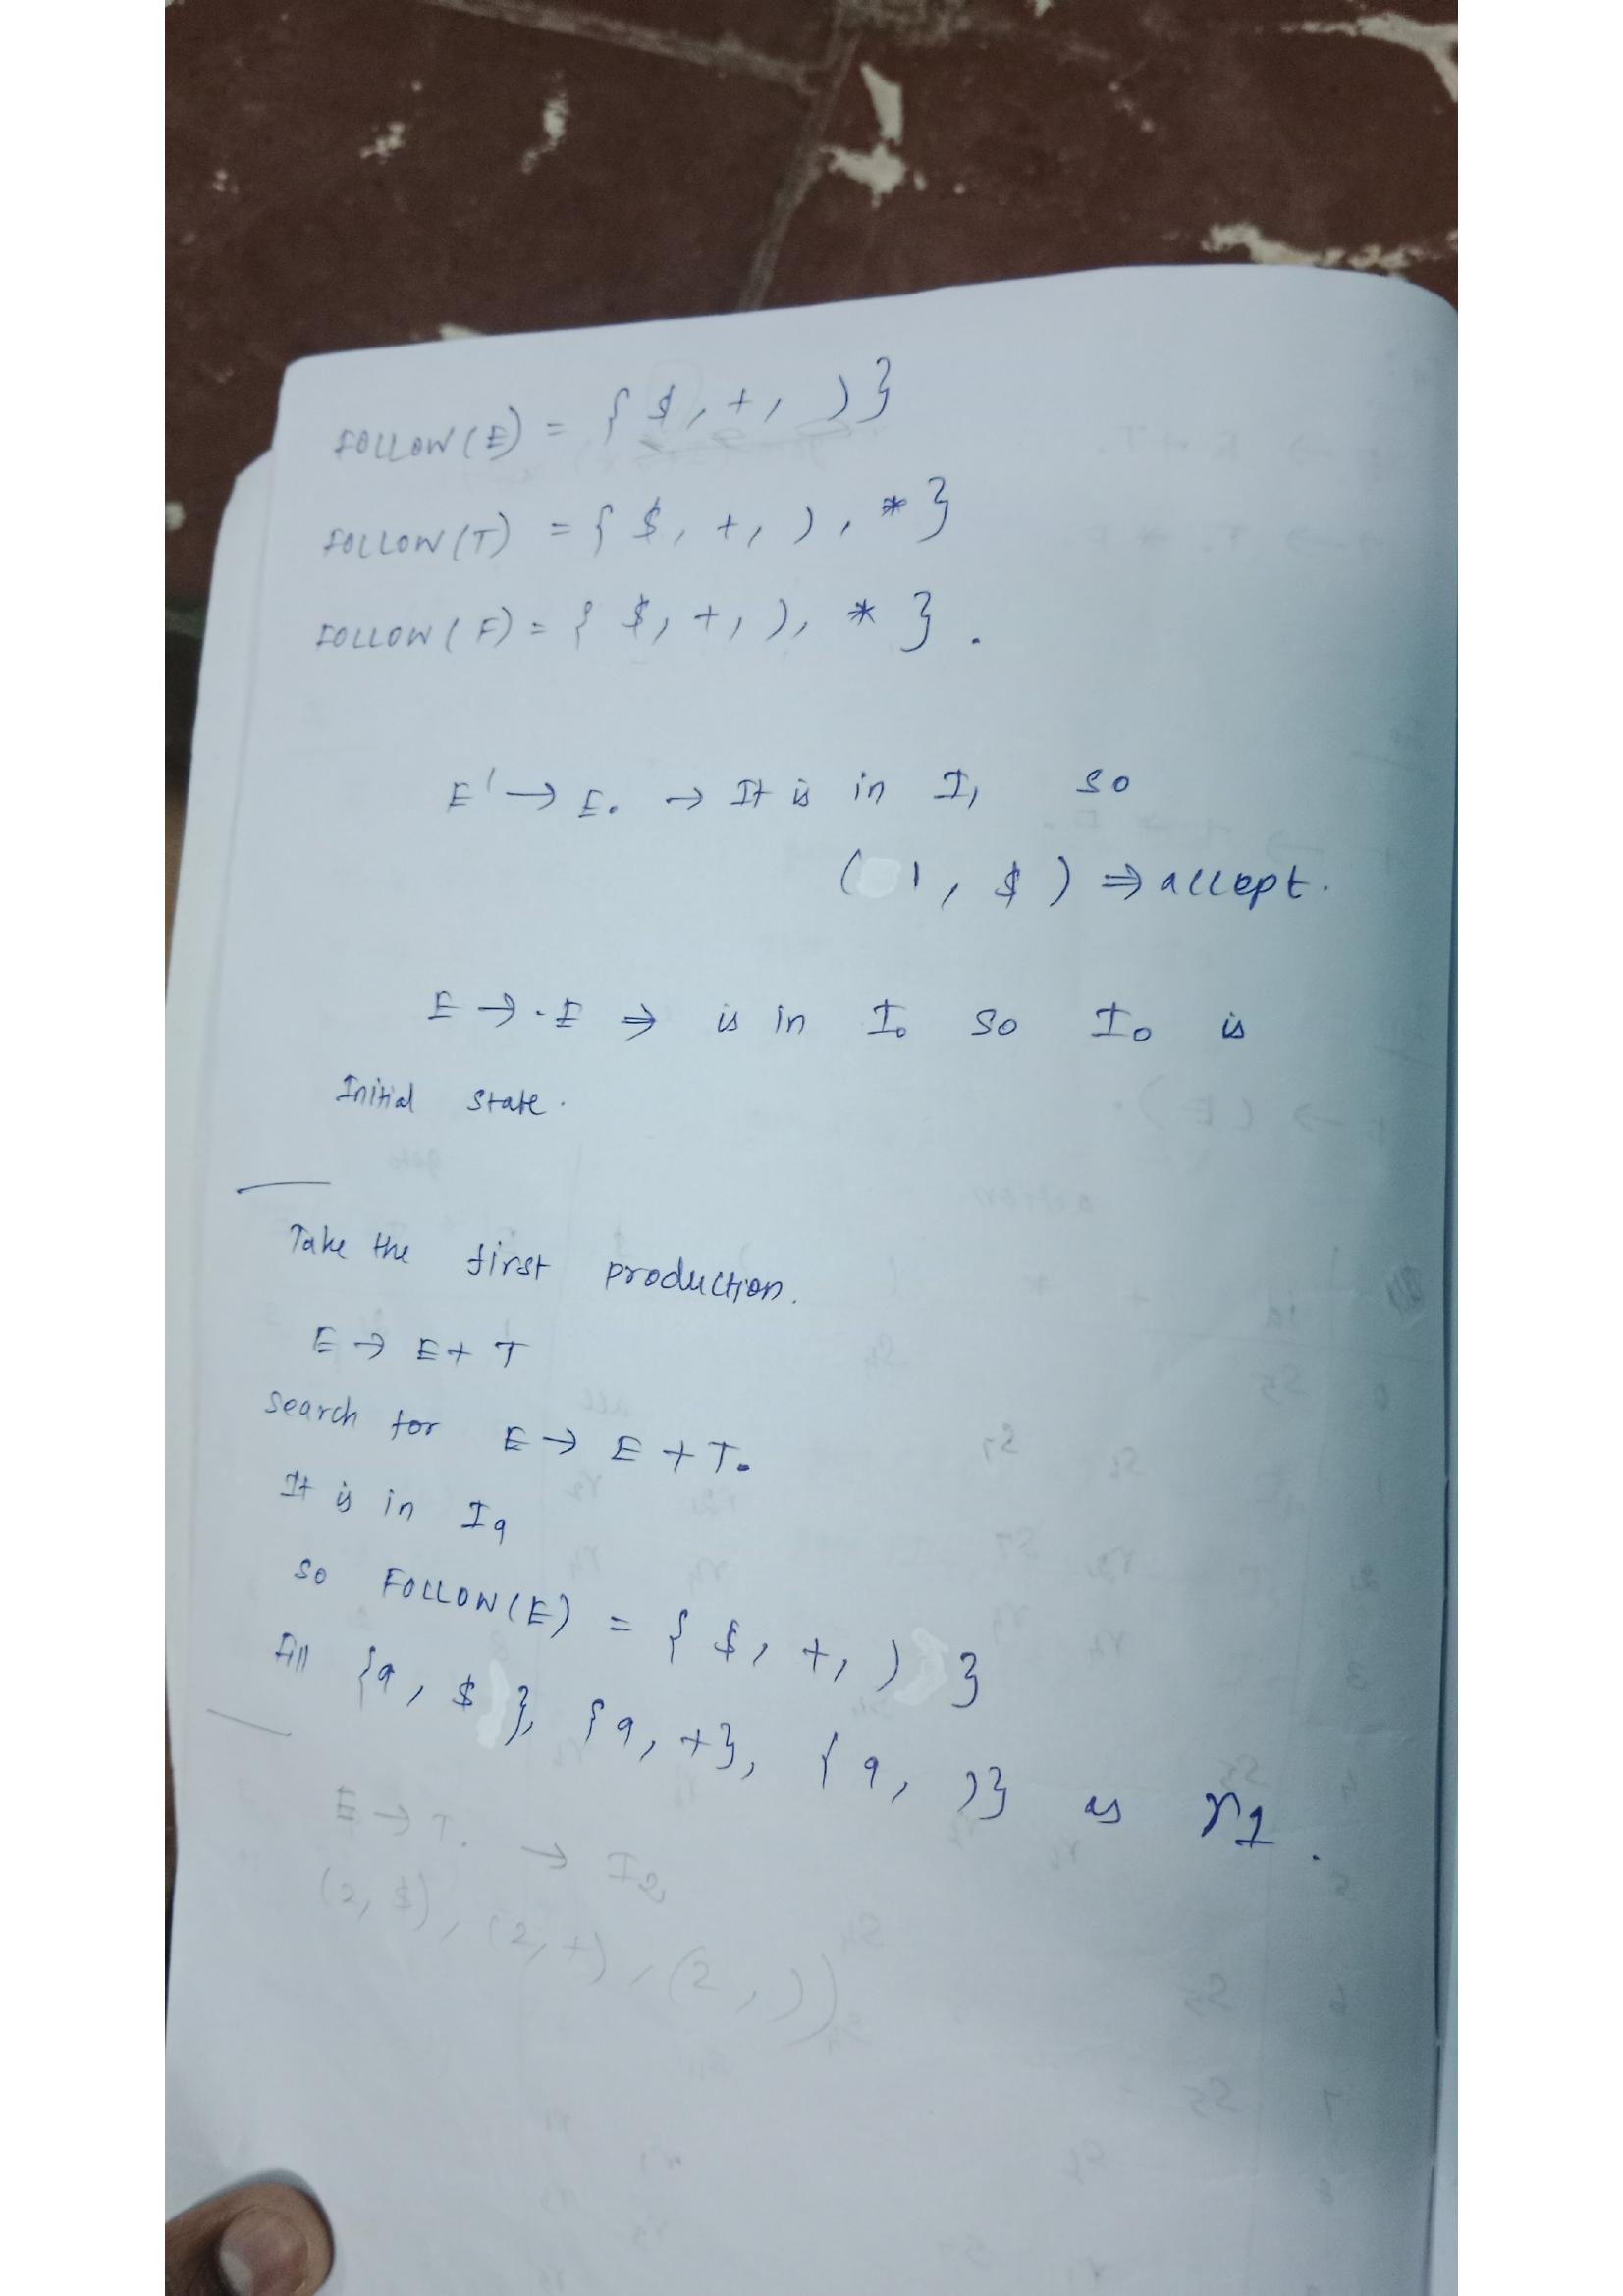 FOLLOW(E) = { $, +, ) }
FOLLOW(T) = { $, +, ), * }
FOLLOW(F) = { $, +, ), * }.
E' → E. → It is in I₁ so
( 1, $ ) ⇒ accept.
E → .E ⇒ is in I₀ so I₀ is
Initial state.
Take the first production.
E → E + T
Search for E → E + T.
It is in I9
so FOLLOW(E) = { $, +, ) }
Fill {9, $}, {9, +}, {9, )} as r1.
E → T. → I2
(2, $), (2, +), (2, ))